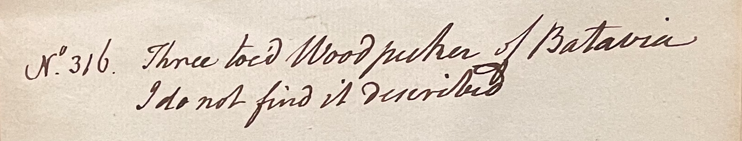 No. 316. Three toe'd Woodpecker of Batavia
I do not find it described